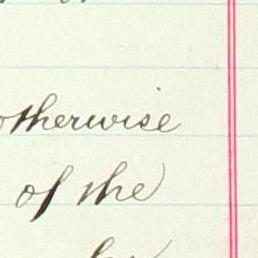 otherwise
of the